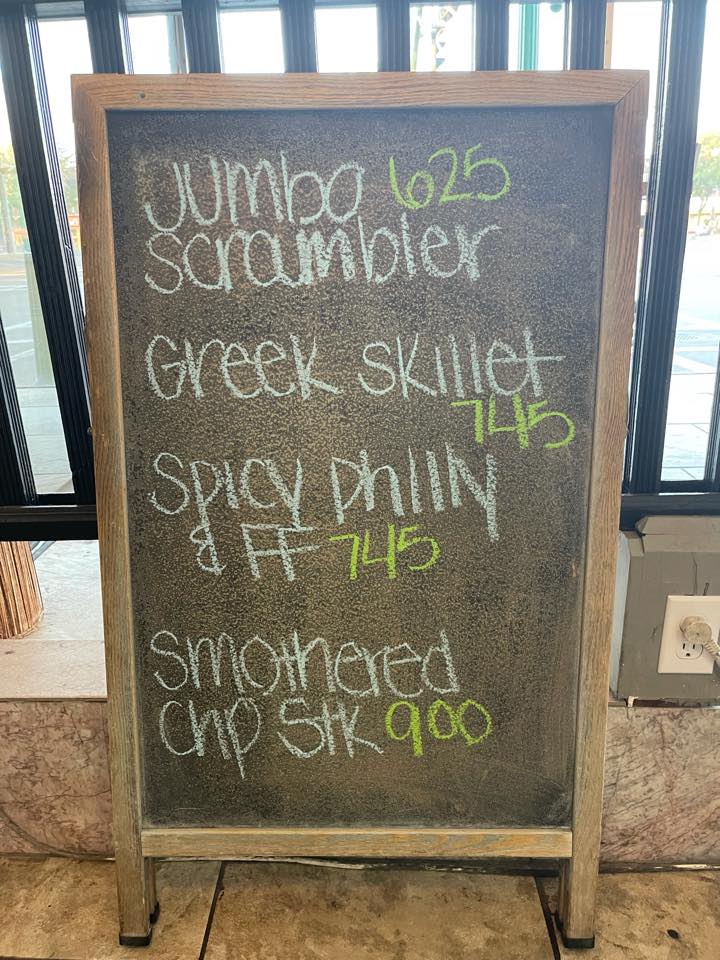 Jumbo 625
scrambler
Greek skillet
745
Spicy philly
& FF 745
Smothered
Chp Stk 900